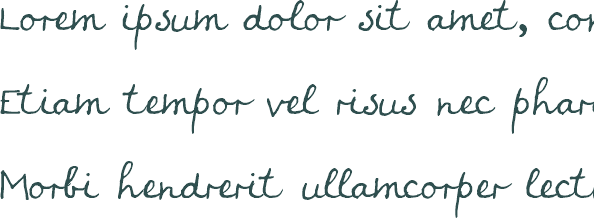 Lorem ipsum dolor sit amet, con
Etiam tempor vel risus nec phar
Morbi hendrerit ullamcorper lect